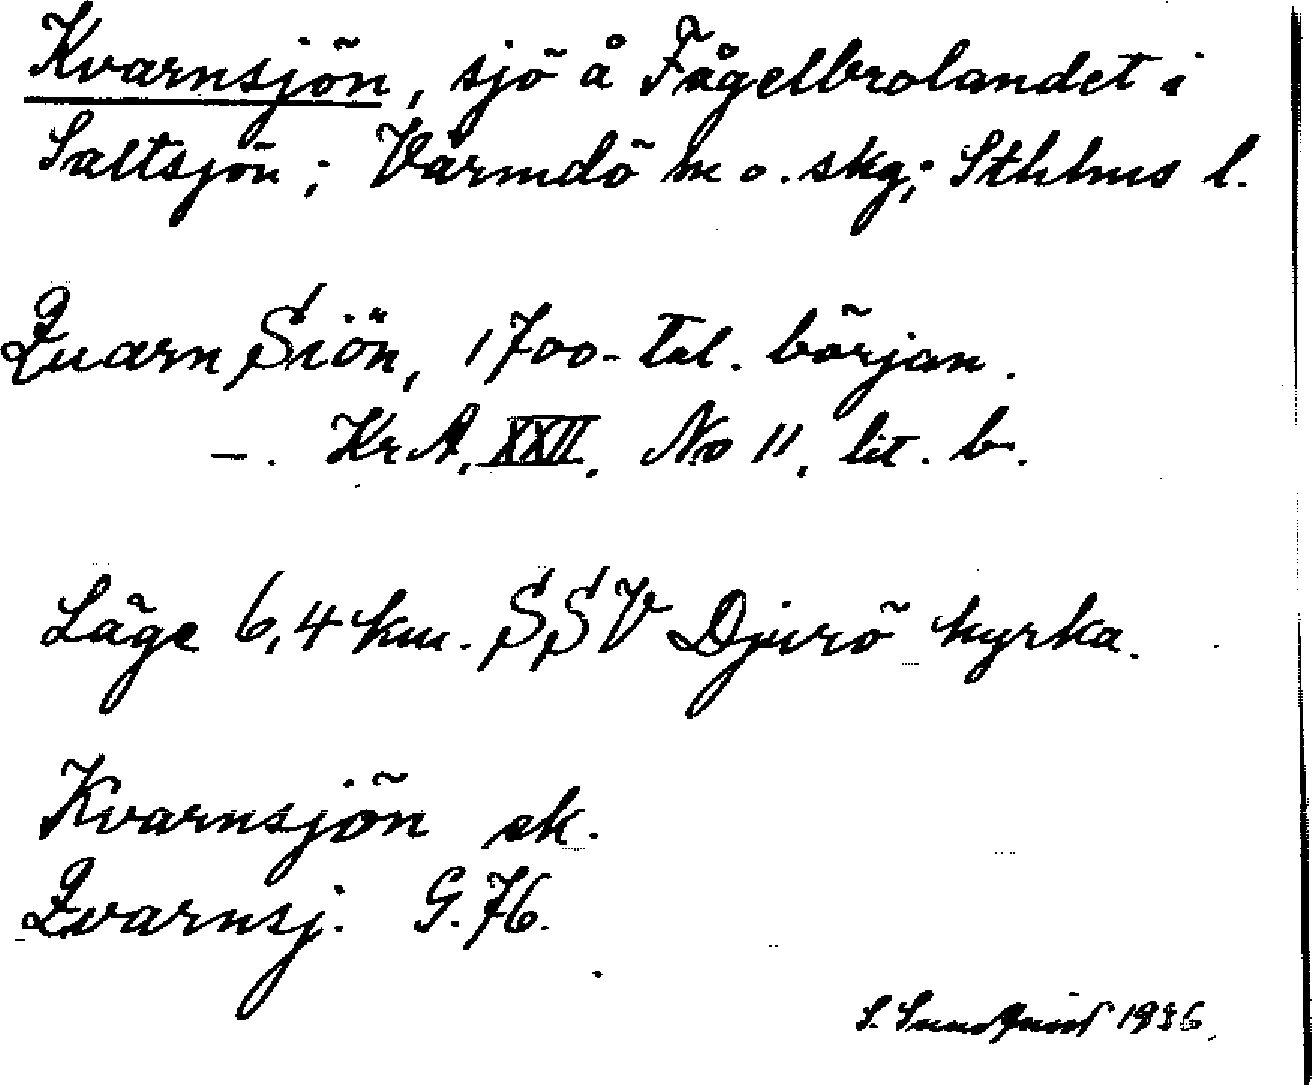 Kvarnsjön, sjö å Fågelbrolandet i
Saltsjön; Värmdö m o. skg; Sthhus l.
Quarn Siön, 1700-tal. början.
—. KrA, XXII, No 11, lit. b.
Läge 6,4 km. SSV Djurö kyrka.
Kvarnsjön ek.
Qvarnsj. G.76.
S. Sundqvist 1936.